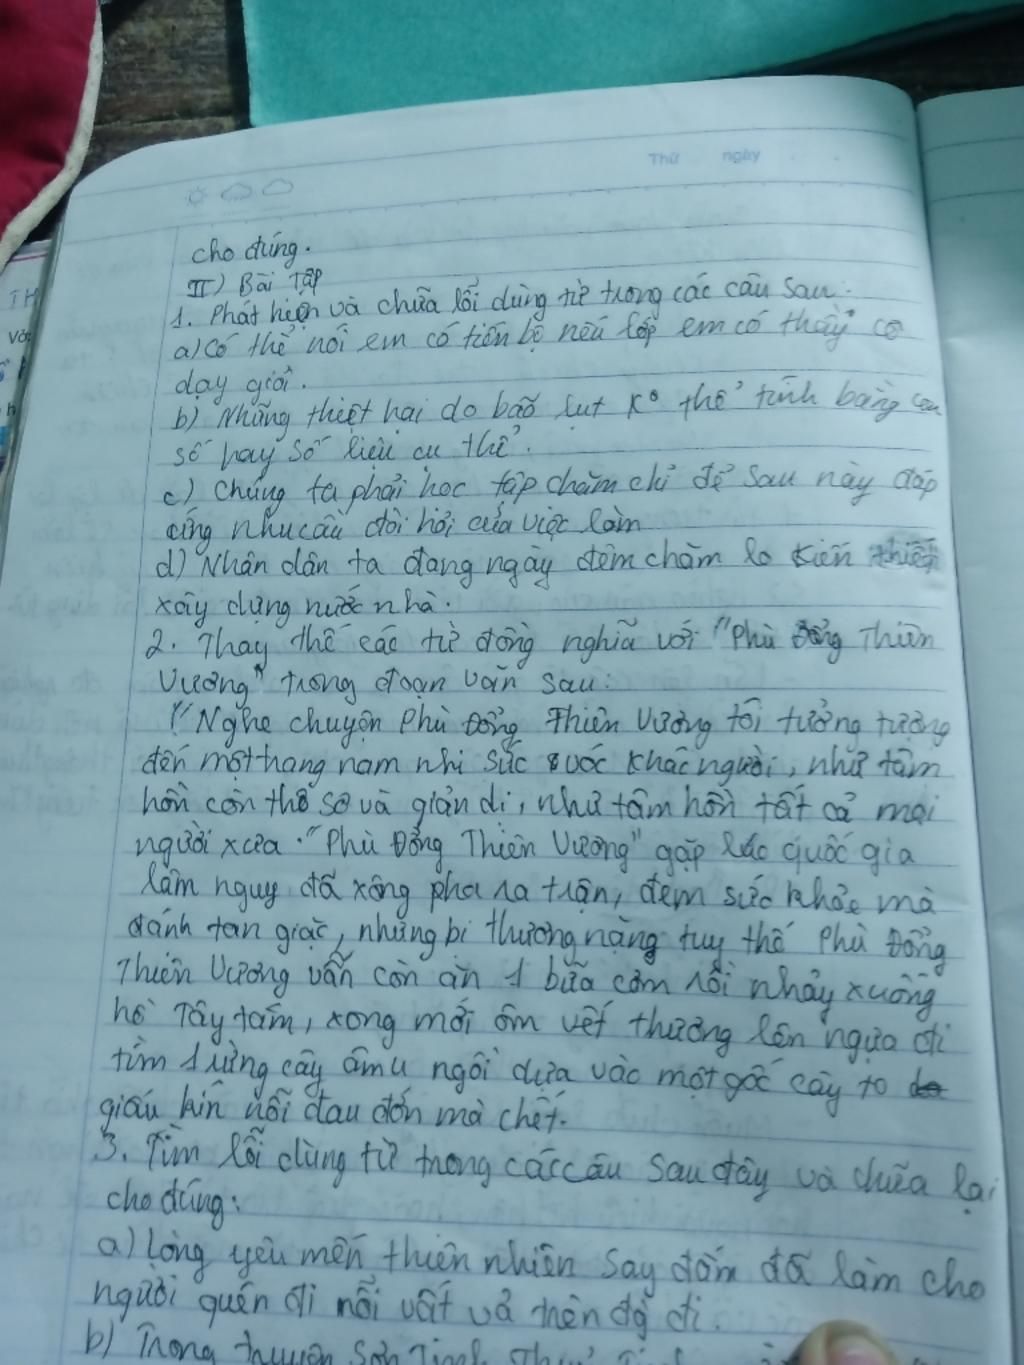 Thứ ngày
cho đúng.
II) Bài Tập
1. Phát hiện và chữa lỗi dùng từ trong các câu sau:
a) Có thể nói em có tiến bộ nếu lớp em có thầy cô
dạy giỏi.
b) Những thiệt hại do bão lụt K° thể tính bằng con
số hay số liệu cụ thể.
c) Chúng ta phải học tập chăm chỉ để sau này đáp
ứng nhu cầu đòi hỏi của việc làm
d) Nhân dân ta đang ngày đêm chăm lo kiến thiết
xây dựng nước nhà.
2. Thay thế các từ đồng nghĩa với "Phù Đổng Thiên
Vương" trong đoạn văn sau:
"Nghe chuyện Phù Đổng Thiên Vương tôi tưởng tượng
đến một trang nam nhi sức vóc khác người, như tâm
hồn còn thô sơ và giản dị, như tâm hồn tất cả mọi
người xưa. "Phù Đổng Thiên Vương" gặp lúc quốc gia
lâm nguy đã xông pha ra trận, đem sức khỏe mà
đánh tan giặc, nhưng bị thương nặng tuy thế Phù Đổng
Thiên Vương vẫn còn ăn 1 bữa cơm rồi nhảy xuống
hồ Tây tắm, xong mới ôm vết thương lên ngựa đi
tìm 1 rừng cây âm u ngồi dựa vào một gốc cây to
giấu kín nỗi đau đớn mà chết.
3. Tìm lỗi dùng từ trong các câu sau đây và chữa lại
cho đúng:
a) Lòng yêu mến thiên nhiên say đắm đã làm cho
người quên đi nỗi vất vả trên đg đi.
b) Trong truyện Sơn Tinh, Thuỷ Tinh